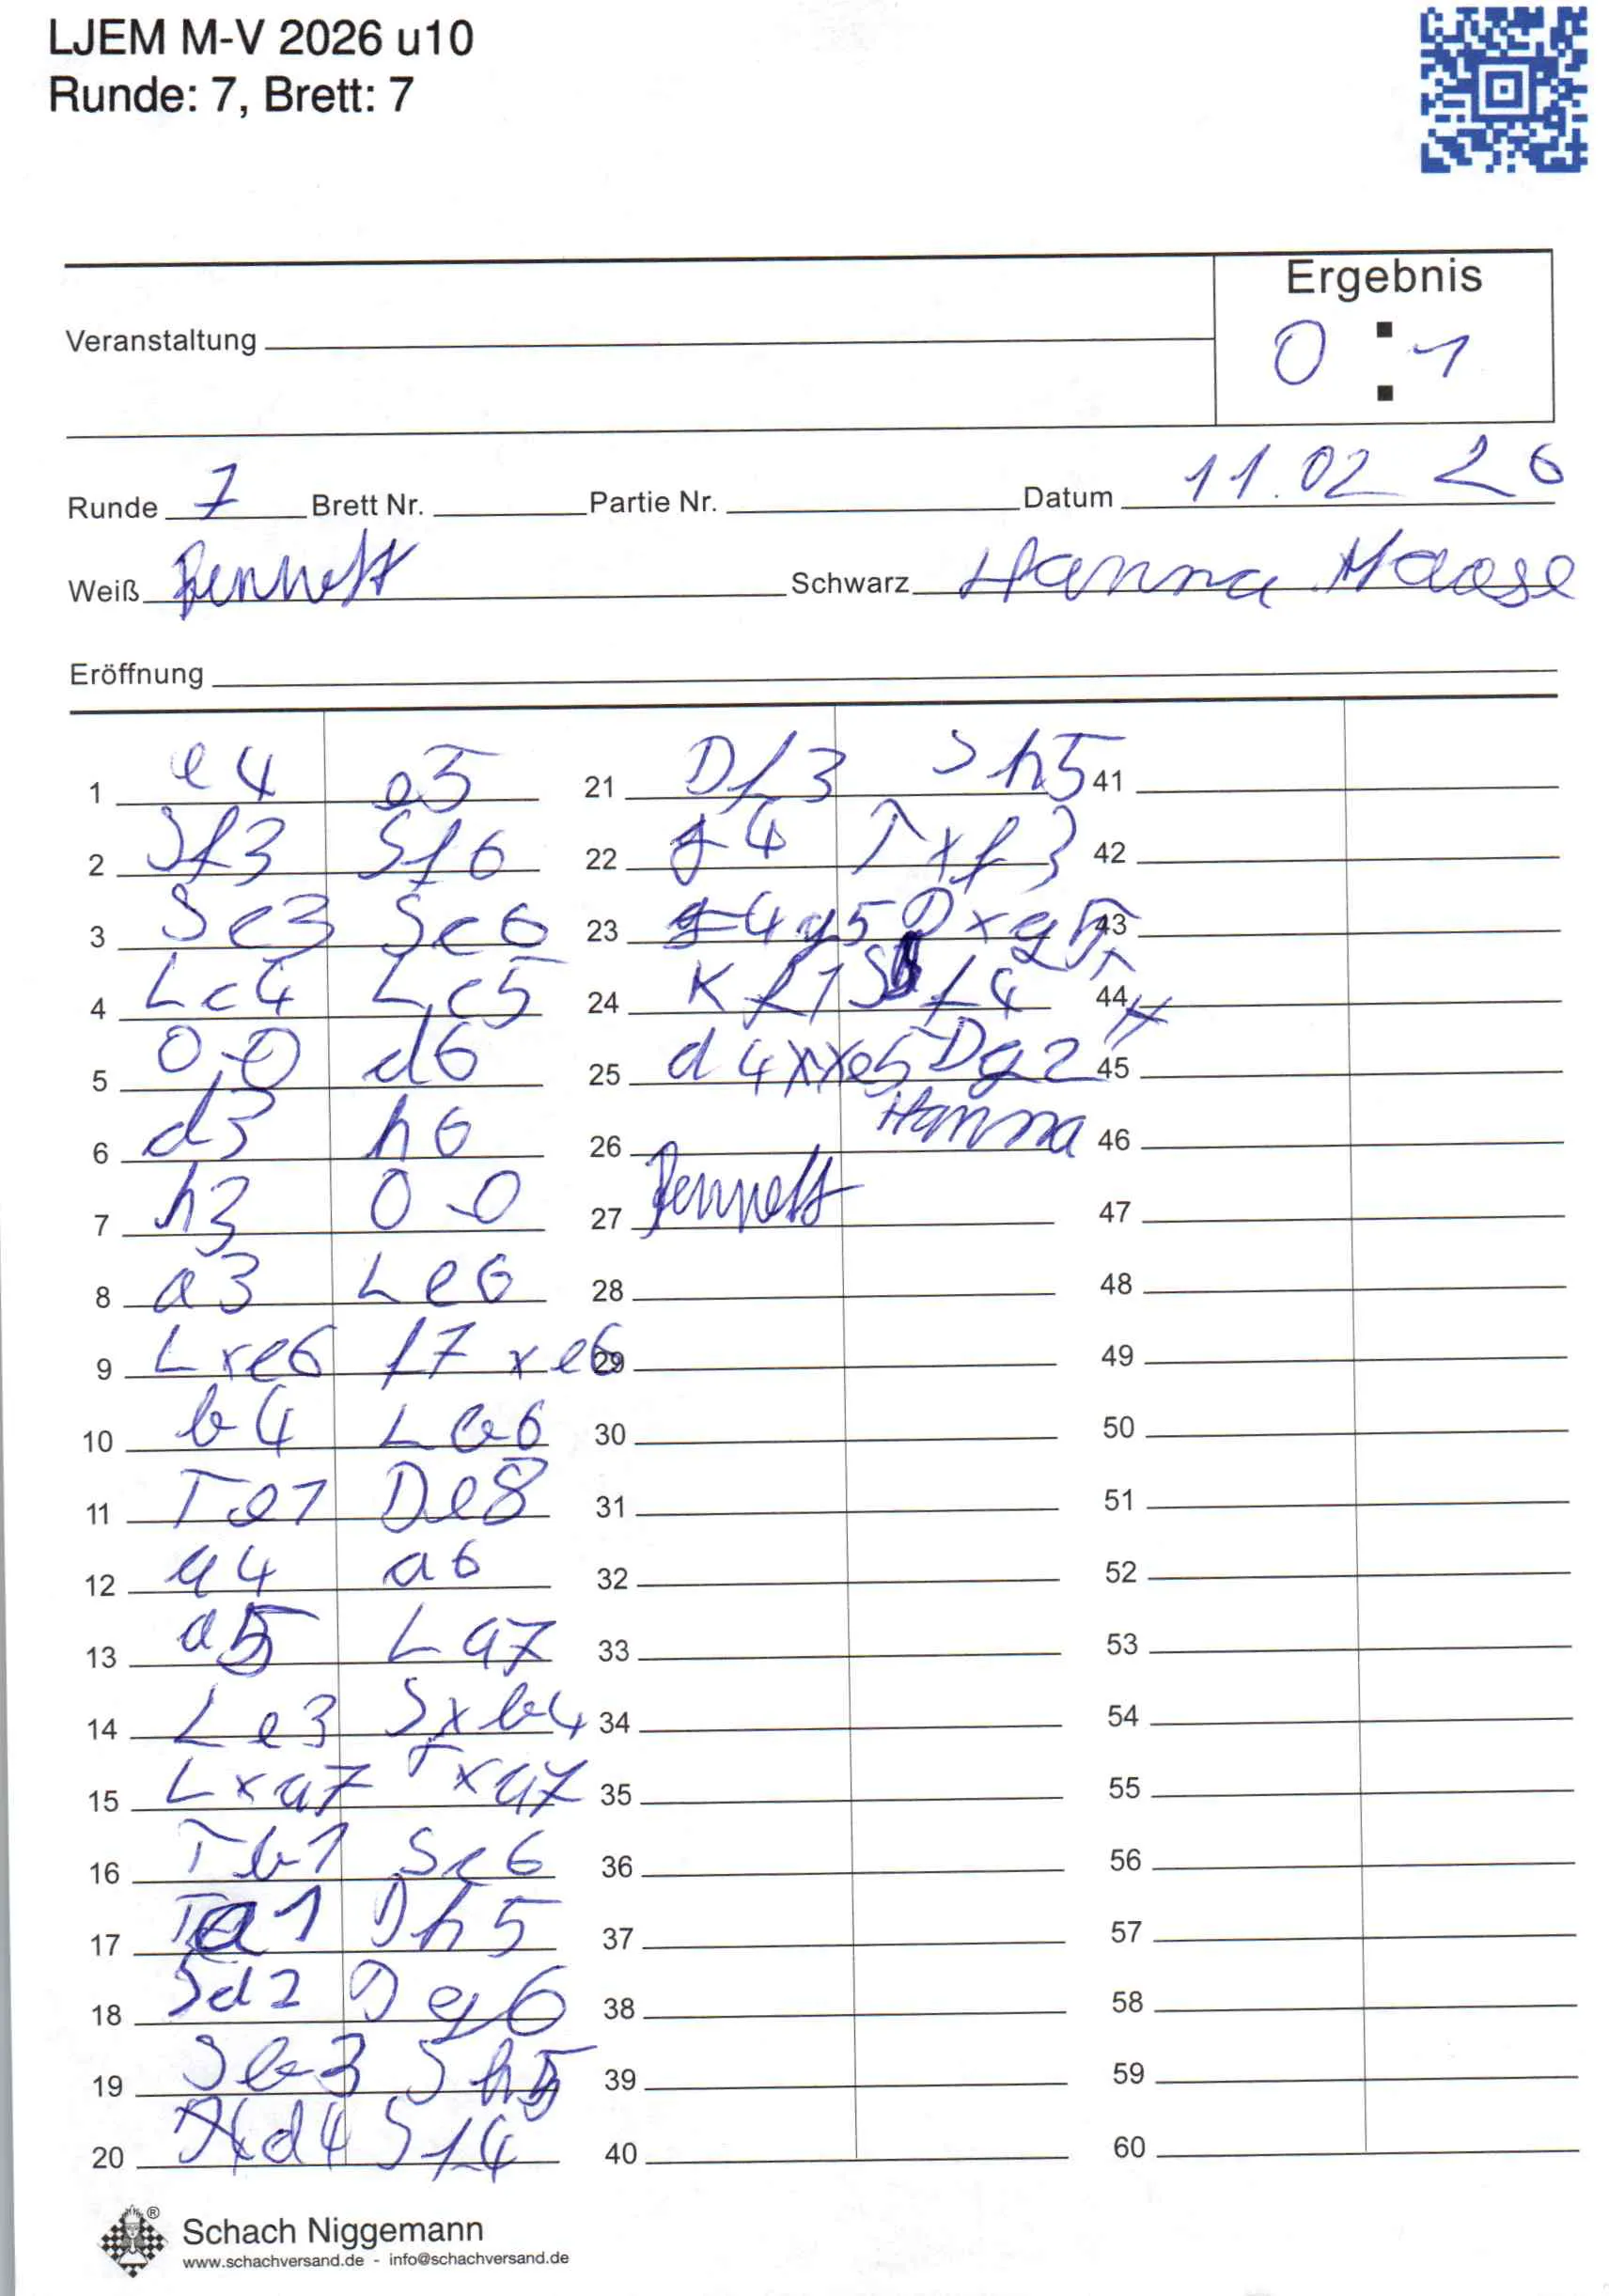 LJEM M-V 2026 u10
Runde: 7, Brett: 7
Ergebnis
Veranstaltung
0 : 1
Runde 7 Brett Nr. Partie Nr. Datum 11.02 26
Weiß Bennett Schwarz Hanna Haase
Eröffnung
1 e4 e5 21 Df3 Sh5 41
2 Sf3 Sf6 22 g4 Txf3 42
3 Sc3 Sc6 23 g4 g5 Dxg5 43
4 Lc4 Lc5 24 Kf1 Sf4 44
5 0-0 d6 25 d4xxe5 Dg2 45
6 d3 h6 26 Hanna 46
7 h3 0-0 27 Bennett 47
8 a3 Le6 28 48
9 Lxe6 f7xe6 29 49
10 b4 Lb6 30 50
11 Te1 De8 31 51
12 a4 a6 32 52
13 a5 La7 33 53
14 Le3 Sxb4 34 54
15 Lxa7 Txa7 35 55
16 Tb1 Sc6 36 56
17 Ta1 Dh5 37 57
18 Sd2 Dg6 38 58
19 Sb3 Sh5 39 59
20 d4 Sf4 40 60
Schach Niggemann
www.schachversand.de - info@schachversand.de